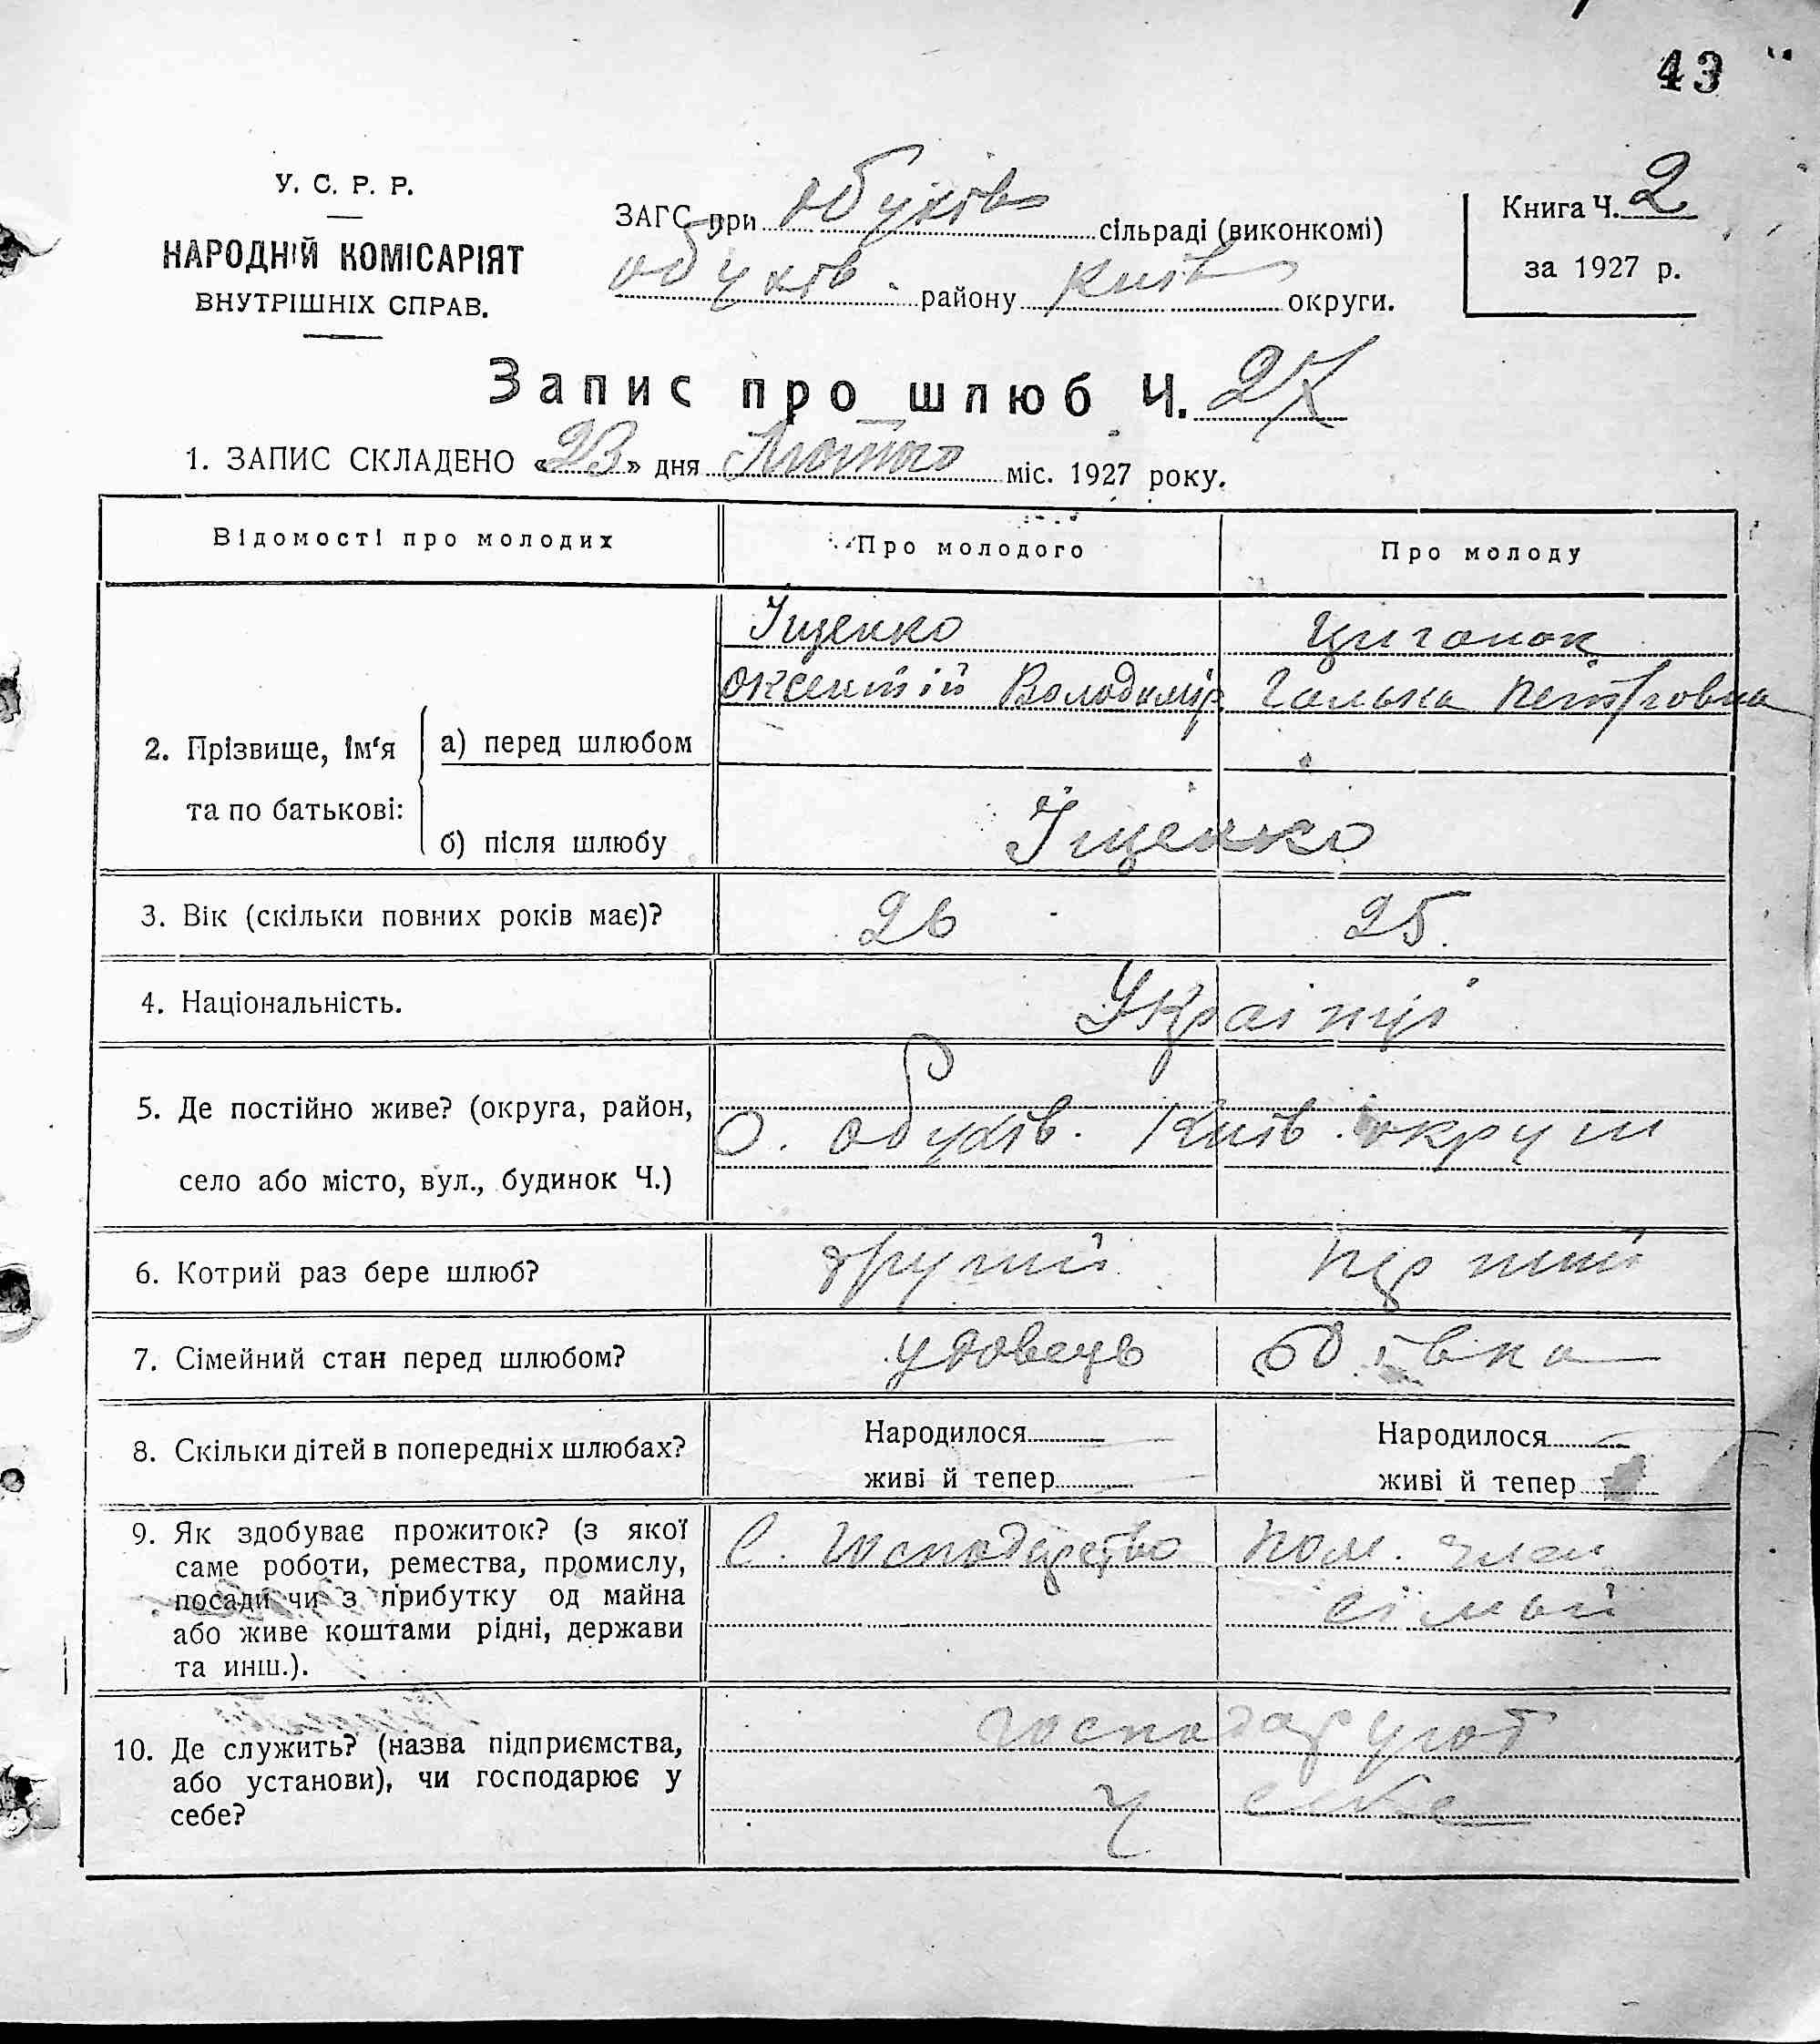 43
У. С. Р. Р.
НАРОДНІЙ КОМІСАРІЯТ
ВНУТРІШНІХ СПРАВ.
ЗАГС при Обухів сільраді (виконкомі)
Обухів району Київ округи.
Книга Ч. 2
за 1927 р.
Запис про шлюб Ч. 27
1. ЗАПИС СКЛАДЕНО «23» дня Лютого міс. 1927 року.
Відомості про молодих
Про молодого
Про молоду
2. Прізвище, ім‘я та по батькові:
а) перед шлюбом
Іщенко
Оксентій Володимір
Циганок
Галька Петровна
б) після шлюбу
Іщенко
3. Вік (скільки повних років має)?
26
25.
4. Національність.
Українці
5. Де постійно живе? (округа, район,
село або місто, вул., будинок Ч.)
Обухів. Київ. округи
6. Котрий раз бере шлюб?
другий
перший
7. Сімейний стан перед шлюбом?
удовець
8. Скільки дітей в попередніх шлюбах?
Народилося
живі й тепер
Народилося
живі й тепер
9. Як здобуває прожиток? (з якої
саме роботи, ремества, промислу,
посади чи з прибутку од майна
або живе коштами рідні, держави
та инш.).
С. господарство
Пом. член
сімьи
10. Де служить? (назва підприємства,
або установи), чи господарює у
себе?
господарують
у себе